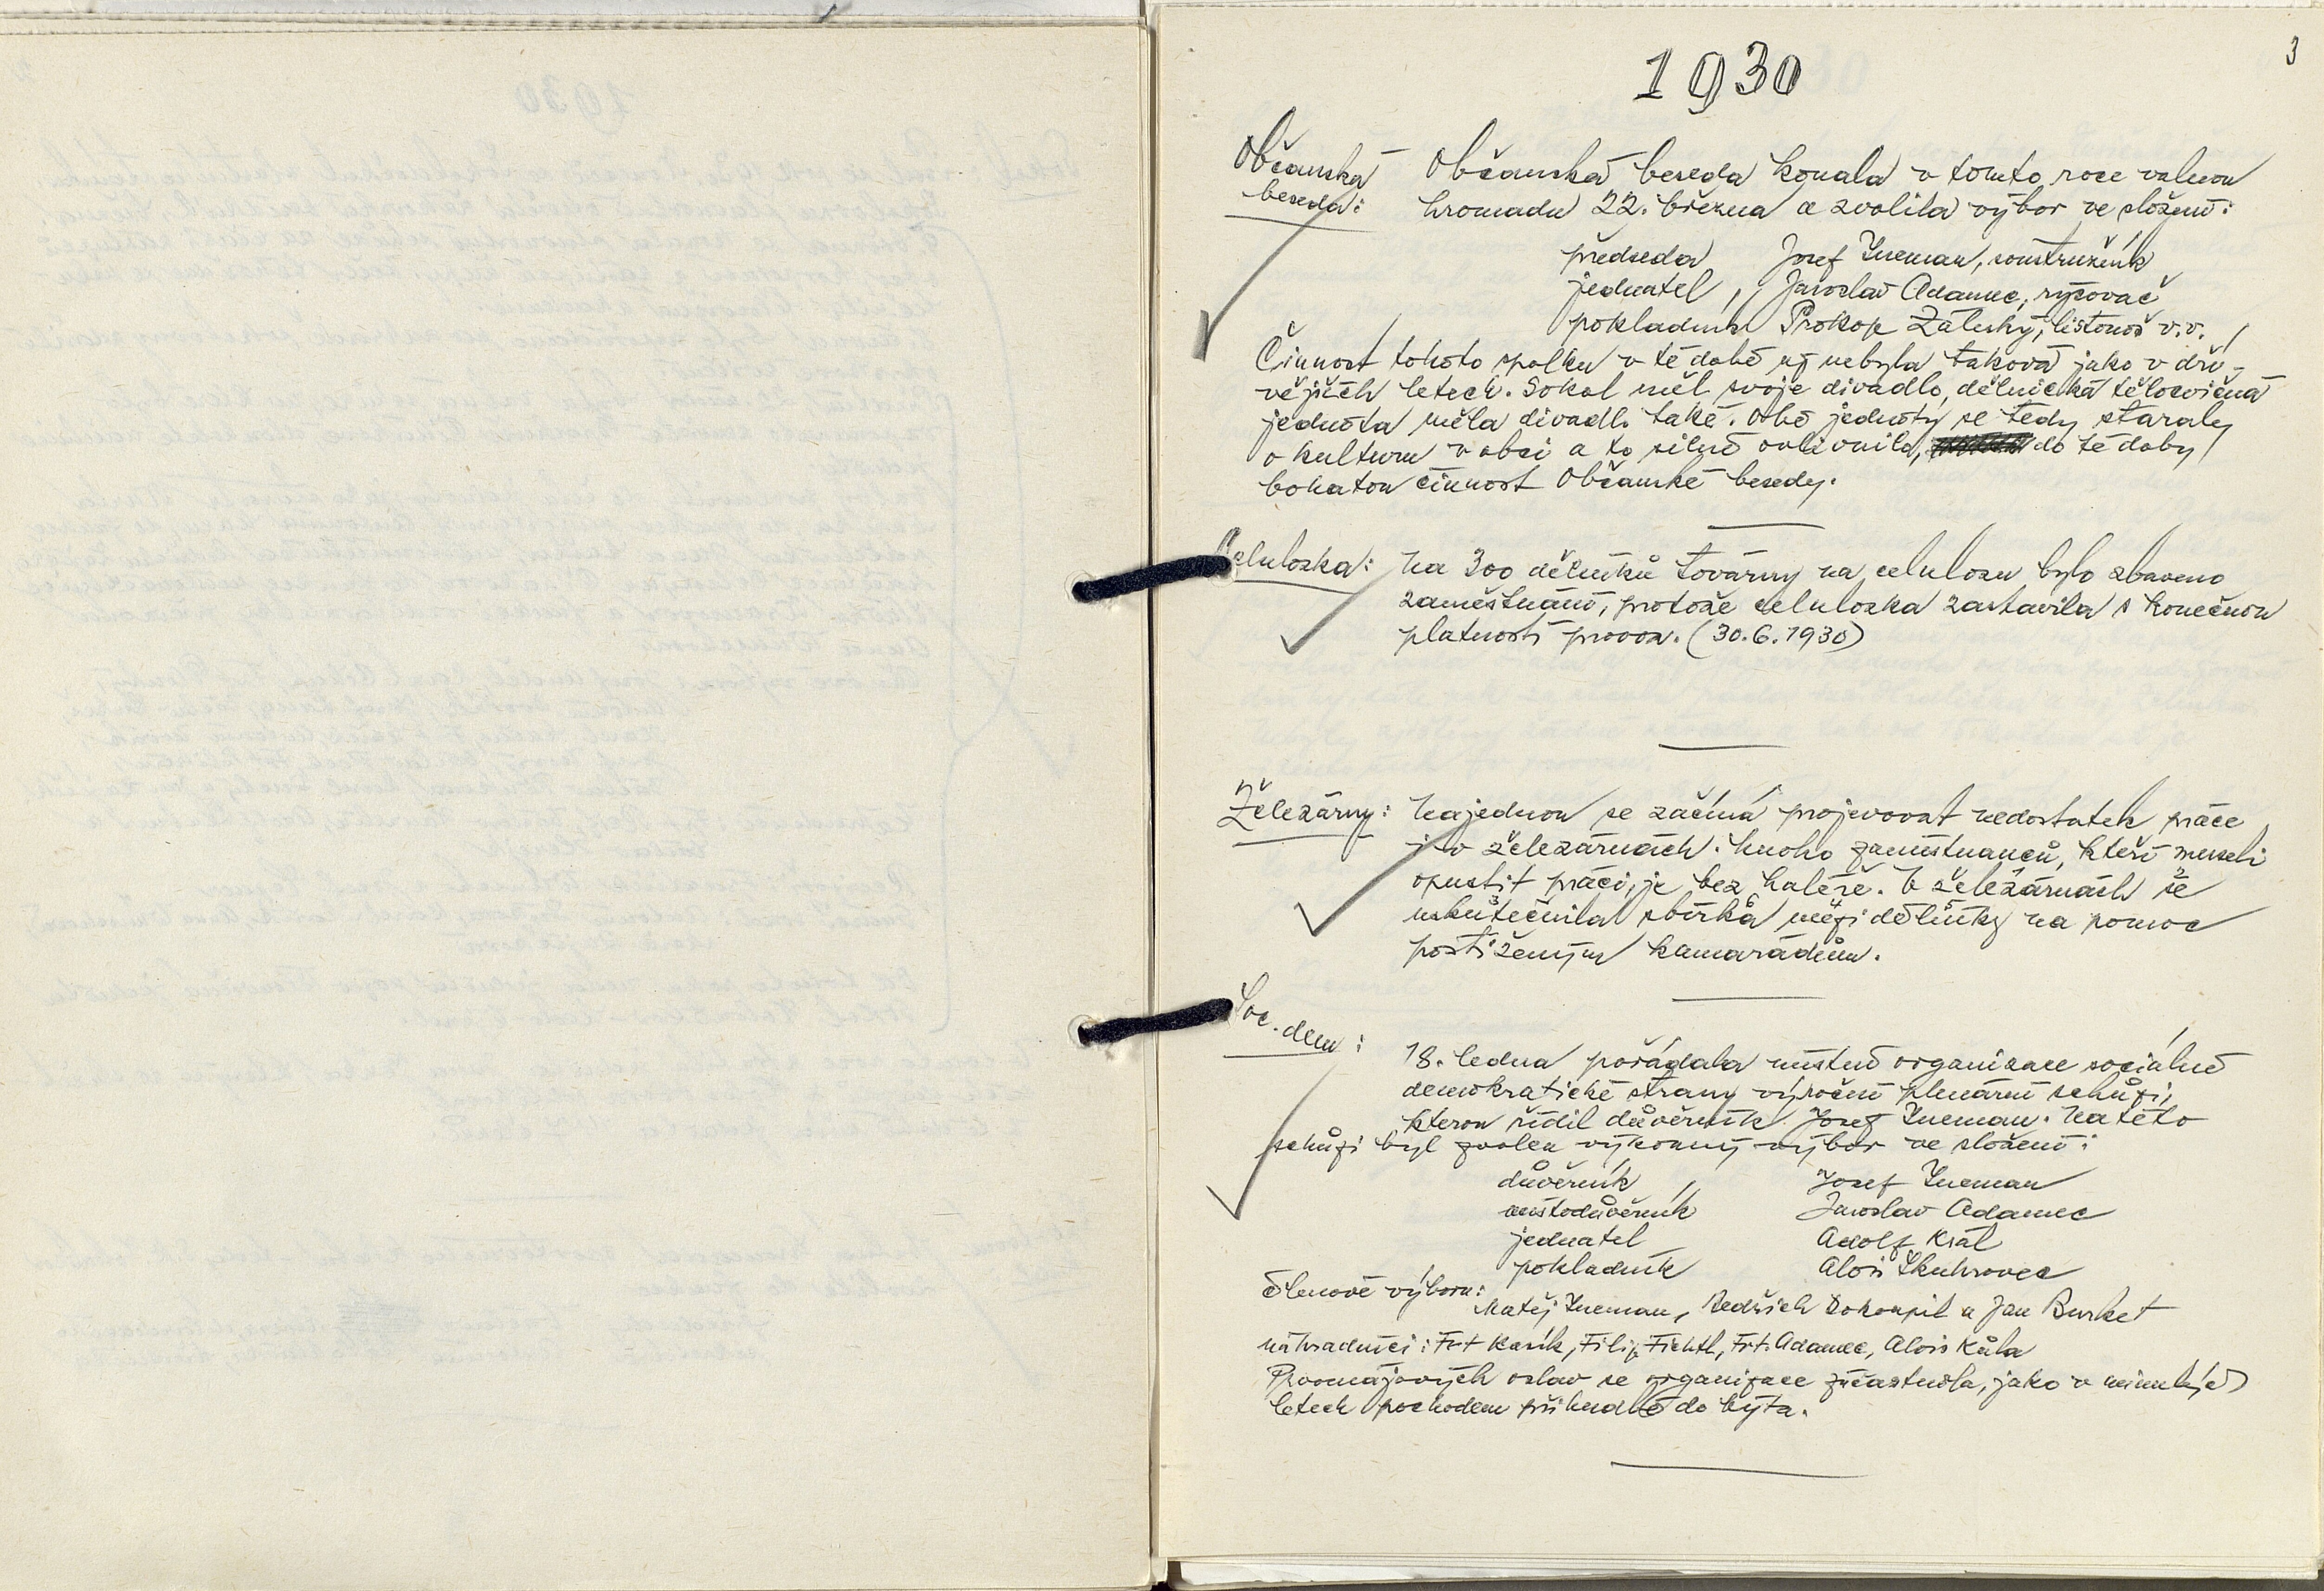 3
1930
Občanská
beseda:
Občanská beseda konala v tomto roce valnou
hromadu 22. března a zvolila výbor ve složení:
předseda Josef Ineman, soustružník
jednatel, Jaroslav Adamec, rýsovač
pokladník Prokop Záleský, listonoš v.v.
Činnost tohoto spolku v té době už nebyla taková jako v dří-
vějších letech. Sokol měl svoje divadlo, dělnická tělocvičná
jednota měla divadlo také. Obě jednoty se tedy staraly
o kulturu v obci a to silně ovlivnilo, do té doby
bohatou činnost Občanské besedy.
Celulozka:
Na 300 dělníků továrny na celulozu bylo zbaveno
zaměstnání, protože celulozka zastavila s konečnou
platností provoz. (30.6.1930)
Železárny:
Najednou se začíná projevovat nedostatek práce
i v železárnách. Mnoho zaměstnanců, kteří museli
opustit práci, je bez haléře. V železárnách se
uskutečnila sbírka mezi dělníky na pomoc
postiženým kamarádům.
Soc. dem:
18. ledna pořádala místní organizace sociálně
demokratické strany výroční plenární schůzi,
kterou řídil důvěrník Josef Ineman. Na této
schůzi byl zvolen výkonný výbor ve složení:
důvěrník Josef Ineman
místodůvěrník Jaroslav Adamec
jednatel Adolf Král
pokladník Alois Skuhrovec
členové výboru:
Matěj Ineman, Bedřich Dokoupil a Jan Burket
náhradníci: Frt Kasík, Filip Fichtl, Frt. Adamec, Alois Kůla
Prvomájových oslav se organizace zúčastnila, jako v minulých
letech pochodem při hudbě do Mýta.